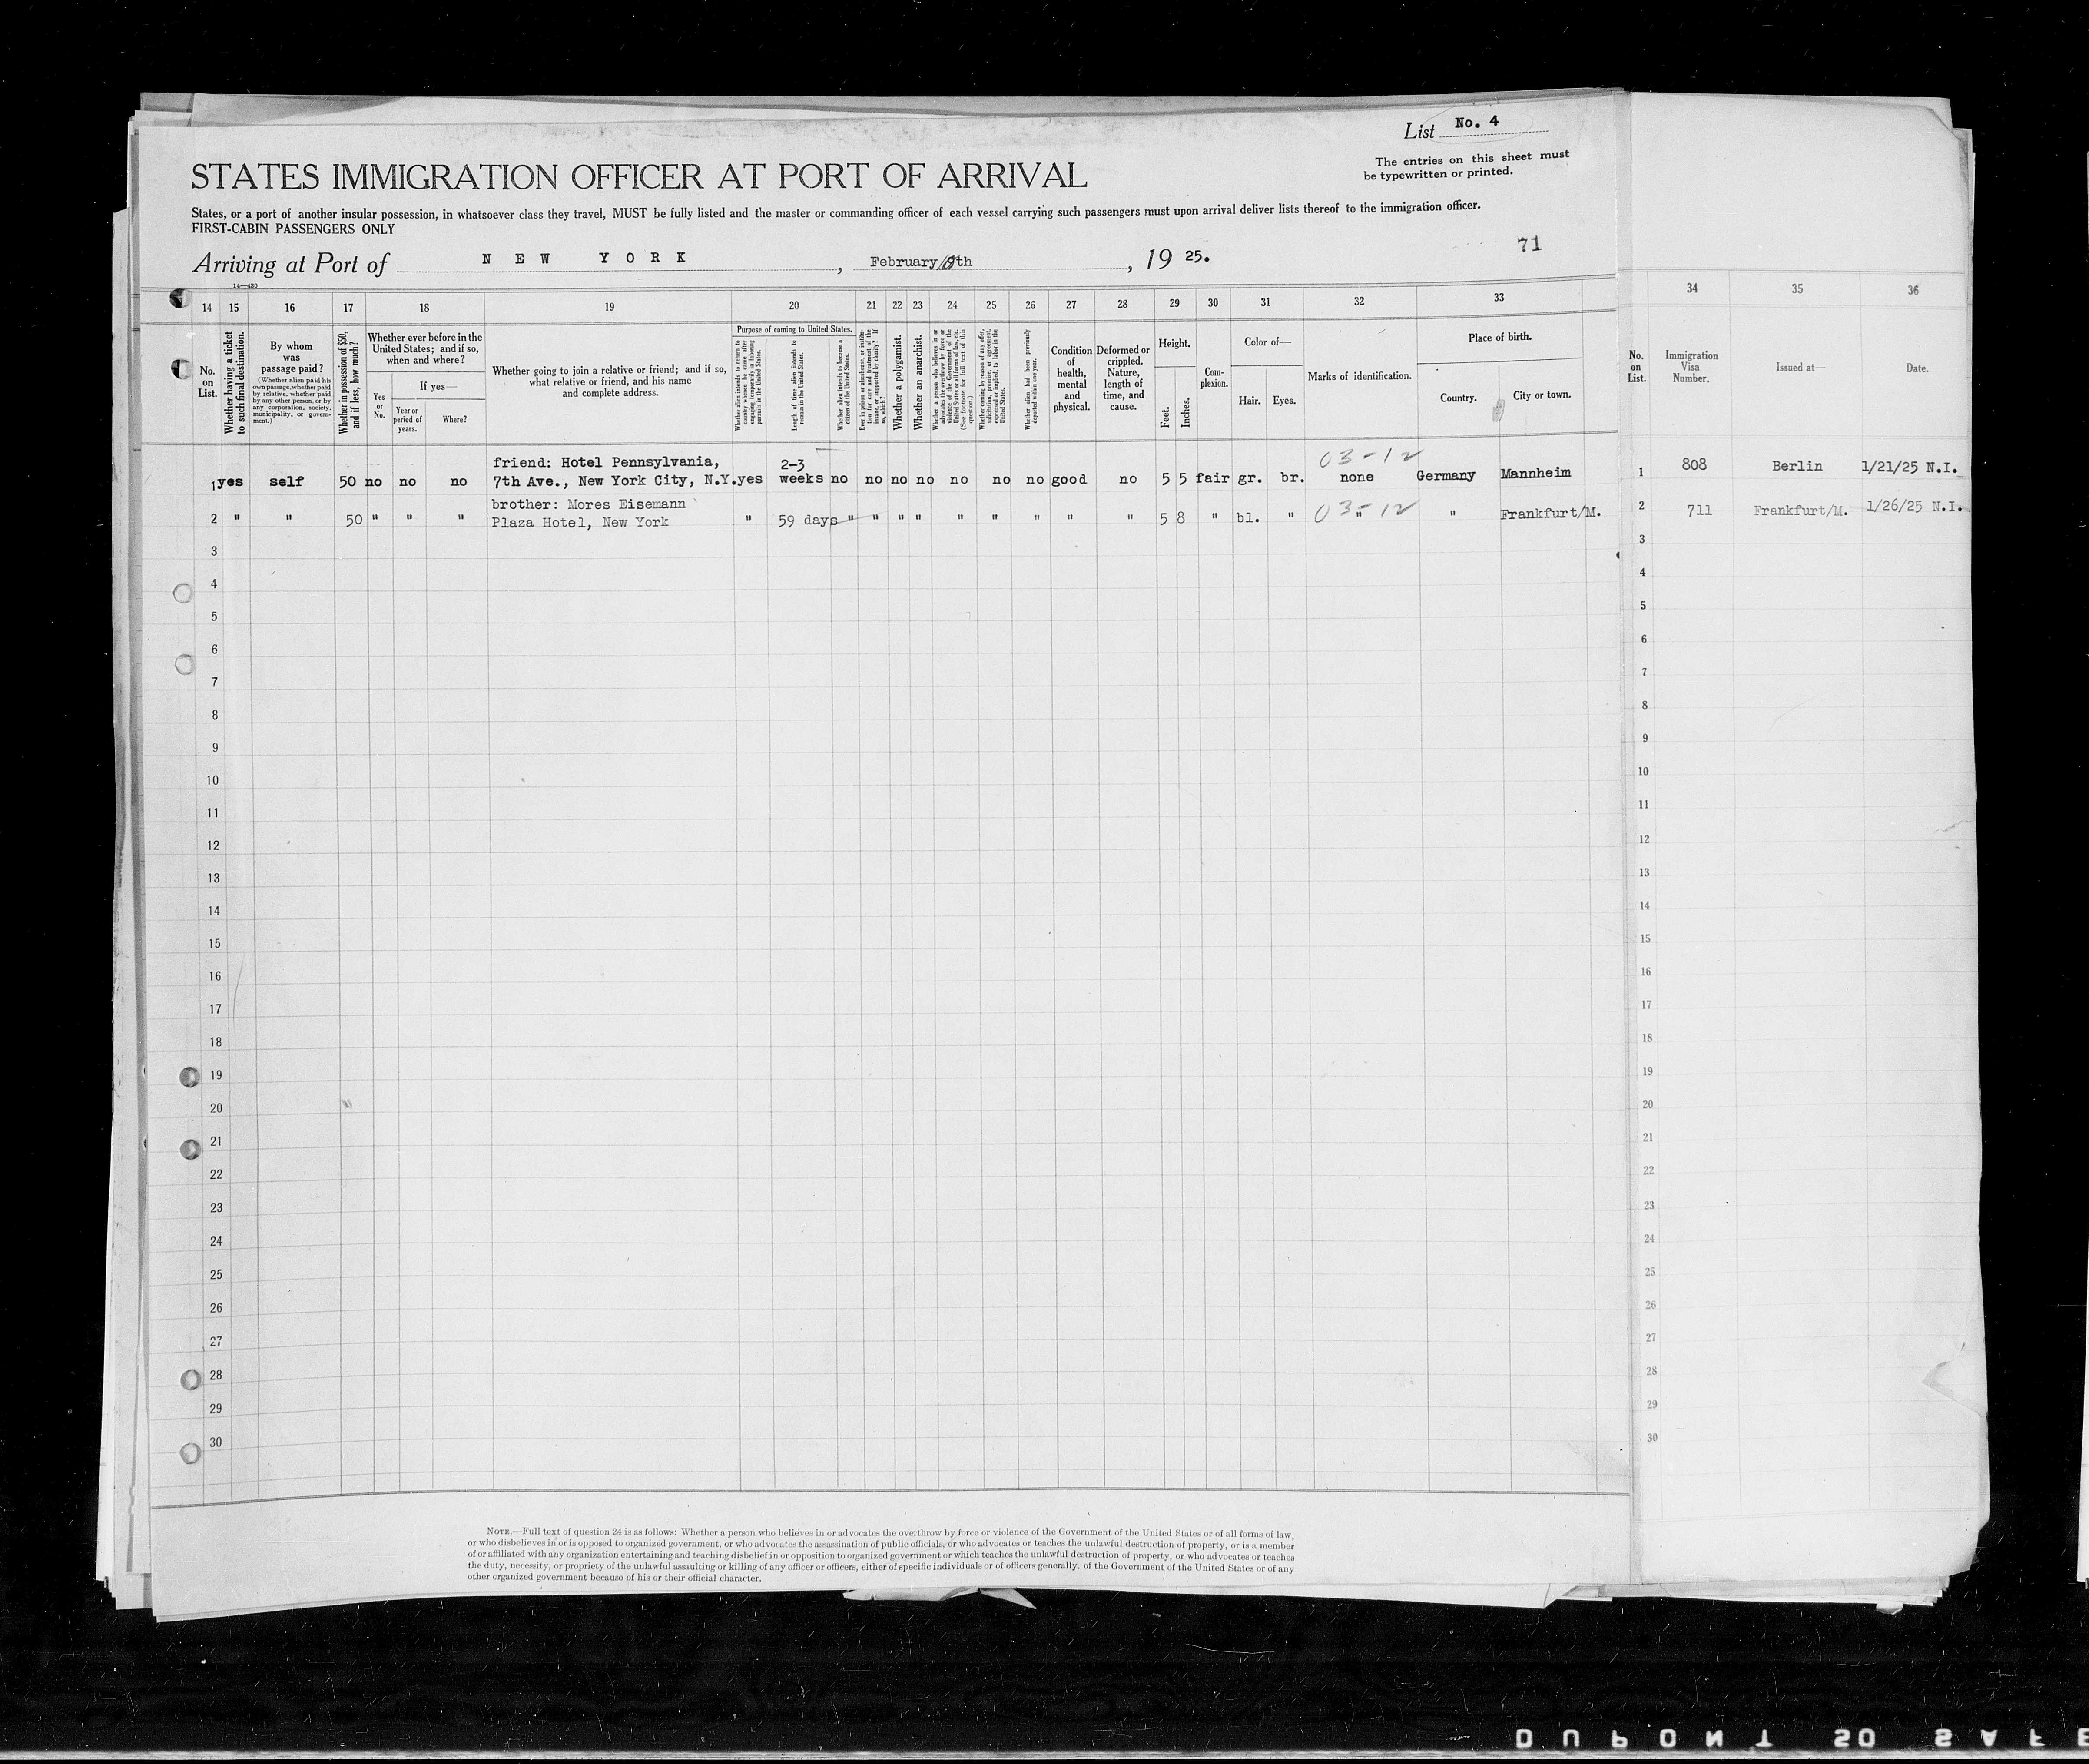 List No. 4
The entries on this sheet must
be typewritten or printed.
STATES IMMIGRATION OFFICER AT PORT OF ARRIVAL
States, or a port of another insular possession, in whatsoever class they travel, MUST be fully listed and the master or commanding officer of each vessel carrying such passengers must upon arrival deliver lists thereof to the immigration officer.
FIRST-CABIN PASSENGERS ONLY
71
Arriving at Port of NEW YORK, February th, 19 25.
14—430
14 15 16 17 18 19 20 21 22 23 24 25 26 27 28 29 30 31 32 33 34 35 36
No. on List.
Whether having a ticket to such final destination.
By whom was passage paid?
(Whether alien paid his own passage, whether paid by relative, whether paid by any other person, or by any corporation, society, municipality, or government.)
Whether in possession of $50, and if less, how much?
Whether ever before in the United States; and if so, when and where?
Yes or No.
If yes—
Year or period of years.
Where?
Whether going to join a relative or friend; and if so, what relative or friend, and his name and complete address.
Purpose of coming to United States.
Whether alien intends to return to country whence he came after engaging temporarily in laboring pursuits in the United States.
Length of time alien intends to remain in the United States.
Whether alien intends to become a citizen of the United States.
Ever in prison or almshouse, or institution for care and treatment of the insane, or supported by charity? If so, which?
Whether a polygamist.
Whether an anarchist.
Whether a person who believes in or advocates the overthrow by force or violence of the Government of the United States or all forms of law, etc. (See footnote for full text of this question.)
Whether coming by reason of any offer, solicitation, promise, or agreement, expressed or implied, to labor in the United States.
Whether alien had been previously deported within one year.
Condition of health, mental and physical.
Deformed or crippled. Nature, length of time, and cause.
Height.
Feet.
Inches.
Complexion.
Color of—
Hair.
Eyes.
Marks of identification.
Place of birth.
Country.
City or town.
No. on List.
Immigration Visa Number.
Issued at—
Date.
friend: Hotel Pennsylvania, 2-3 03-12
1 yes self 50 no no no 7th Ave., New York City, N.Y. yes weeks no no no no no no no good no 5 5 fair gr. br. none Germany Mannheim 1 808 Berlin 1/21/25 N.I.
brother: Mores Eisemann
2 " " 50 " " " Plaza Hotel, New York " 59 days " " " " " " " " " 5 8 " bl. " 03-12 " " Frankfurt/M. 2 711 Frankfurt/M. 1/26/25 N.I.
3 3
4 4
5 5
6 6
7 7
8 8
9 9
10 10
11 11
12 12
13 13
14 14
15 15
16 16
17 17
18 18
19 19
20 20
21 21
22 22
23 23
24 24
25 25
26 26
27 27
28 28
29 29
30 30
NOTE.—Full text of question 24 is as follows: Whether a person who believes in or advocates the overthrow by force or violence of the Government of the United States or of all forms of law,
or who disbelieves in or is opposed to organized government, or who advocates the assassination of public officials, or who advocates or teaches the unlawful destruction of property, or is a member
of or affiliated with any organization entertaining and teaching disbelief in or opposition to organized government or which teaches the unlawful destruction of property, or who advocates or teaches
the duty, necessity, or propriety of the unlawful assaulting or killing of any officer or officers, either of specific individuals or of officers generally, of the Government of the United States or of any
other organized government because of his or their official character.
DUPONT SO SAFE